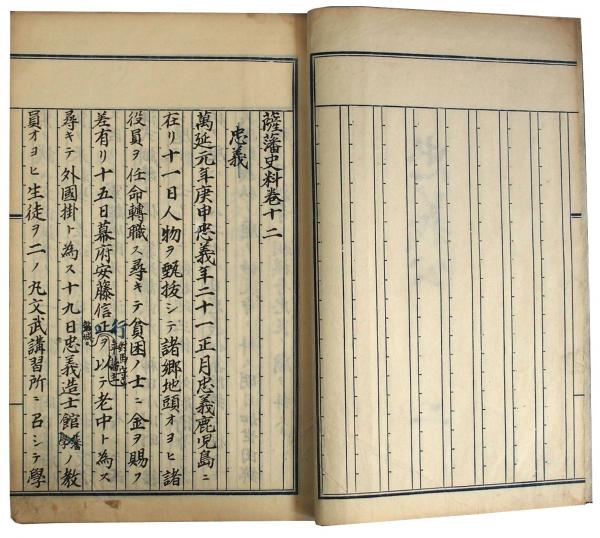 薩藩史料巻十二
忠義
萬延元年庚申忠義年二十一正月忠義鹿児島ニ
在リ十一日人物ヲ甄抜シテ諸郷地頭オヨヒ諸
役員ヲ任命轉職ス尋キテ貧困ノ士ニ金ヲ賜フ
差有リ十五日幕府安藤信正行ヲ以テ老中ト為ス
尋キテ外國掛ト為ス十九日忠義造士館ノ教
員オヨヒ生徒ヲ二ノ丸文武講習所ニ召シテ學